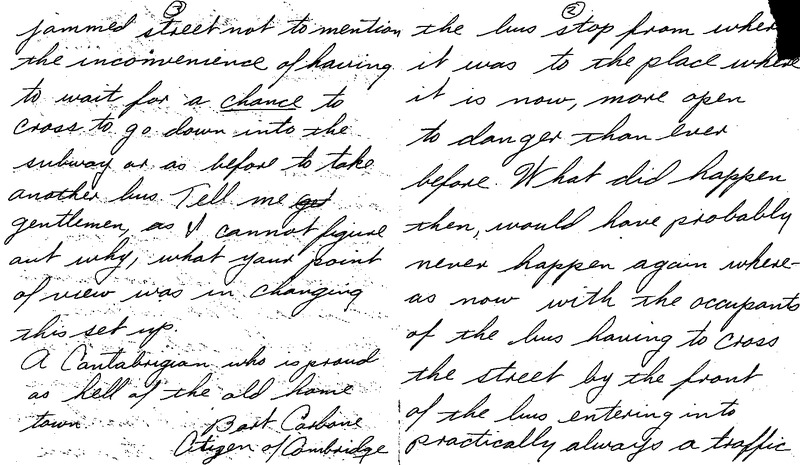 ②
the bus stop from where
it was to the place where
it is now, more open
to danger than ever
before. What did happen
then, would have probably
never happen again where-
as now with the occupants
of the bus having to cross
the street by the front
of the bus entering into
practically always a traffic
③
jammed street not to mention
the inconvenience of having
to wait for a chance to
cross to go down into the
subway or as before to take
another bus. Tell me
gentlemen, as I cannot figure
out why, what your point
of view was in changing
this set up.
A Cantabrigian who is proud
as hell of the old home
town
Bart Carbone
Citizen of Cambridge